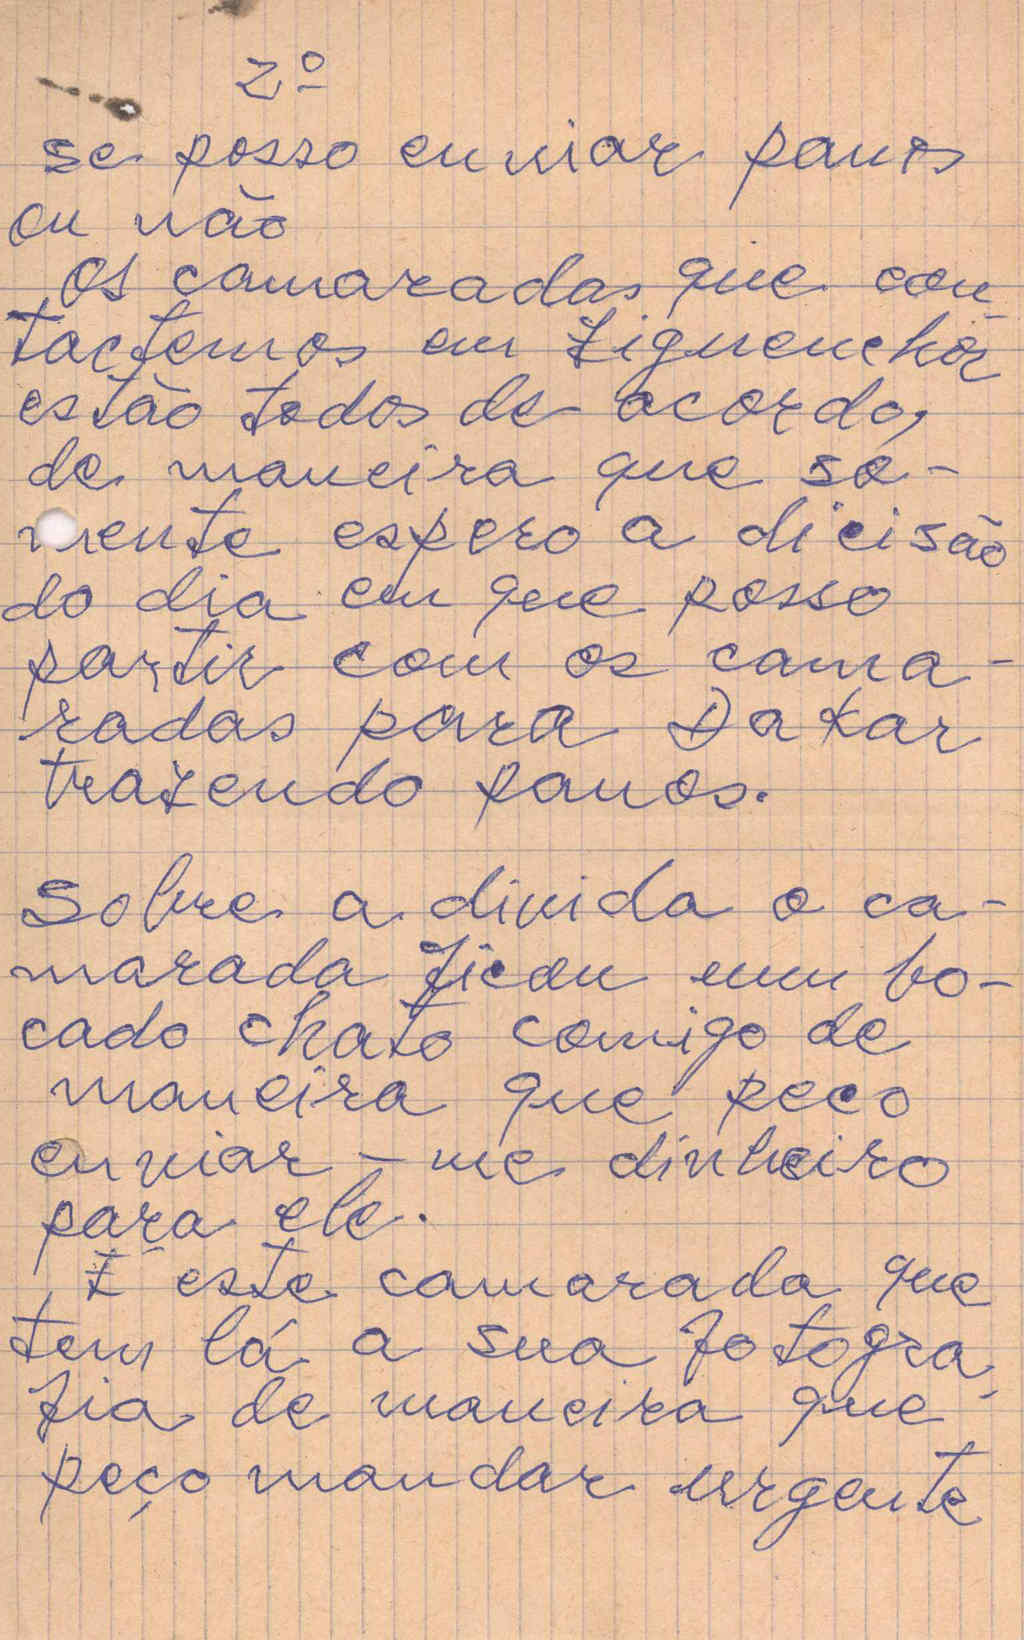 2º
se posso enviar panos
ou não
Os camaradas que con-
tactemos em Ziguenchór
estão todos de acordo,
de maneira que sò-
mente espero a dicisão
do dia em que posso
partir com os cama-
radas para Dakar
trazendo panos.
Sobre a divida o ca-
marada ficou num bo-
cado chato comigo de
maneira que peco
enviar-me dinheiro
para ele.
E este camarada que
tem lá a sua fotogra-
fia de maneira que
peço mandar urgente